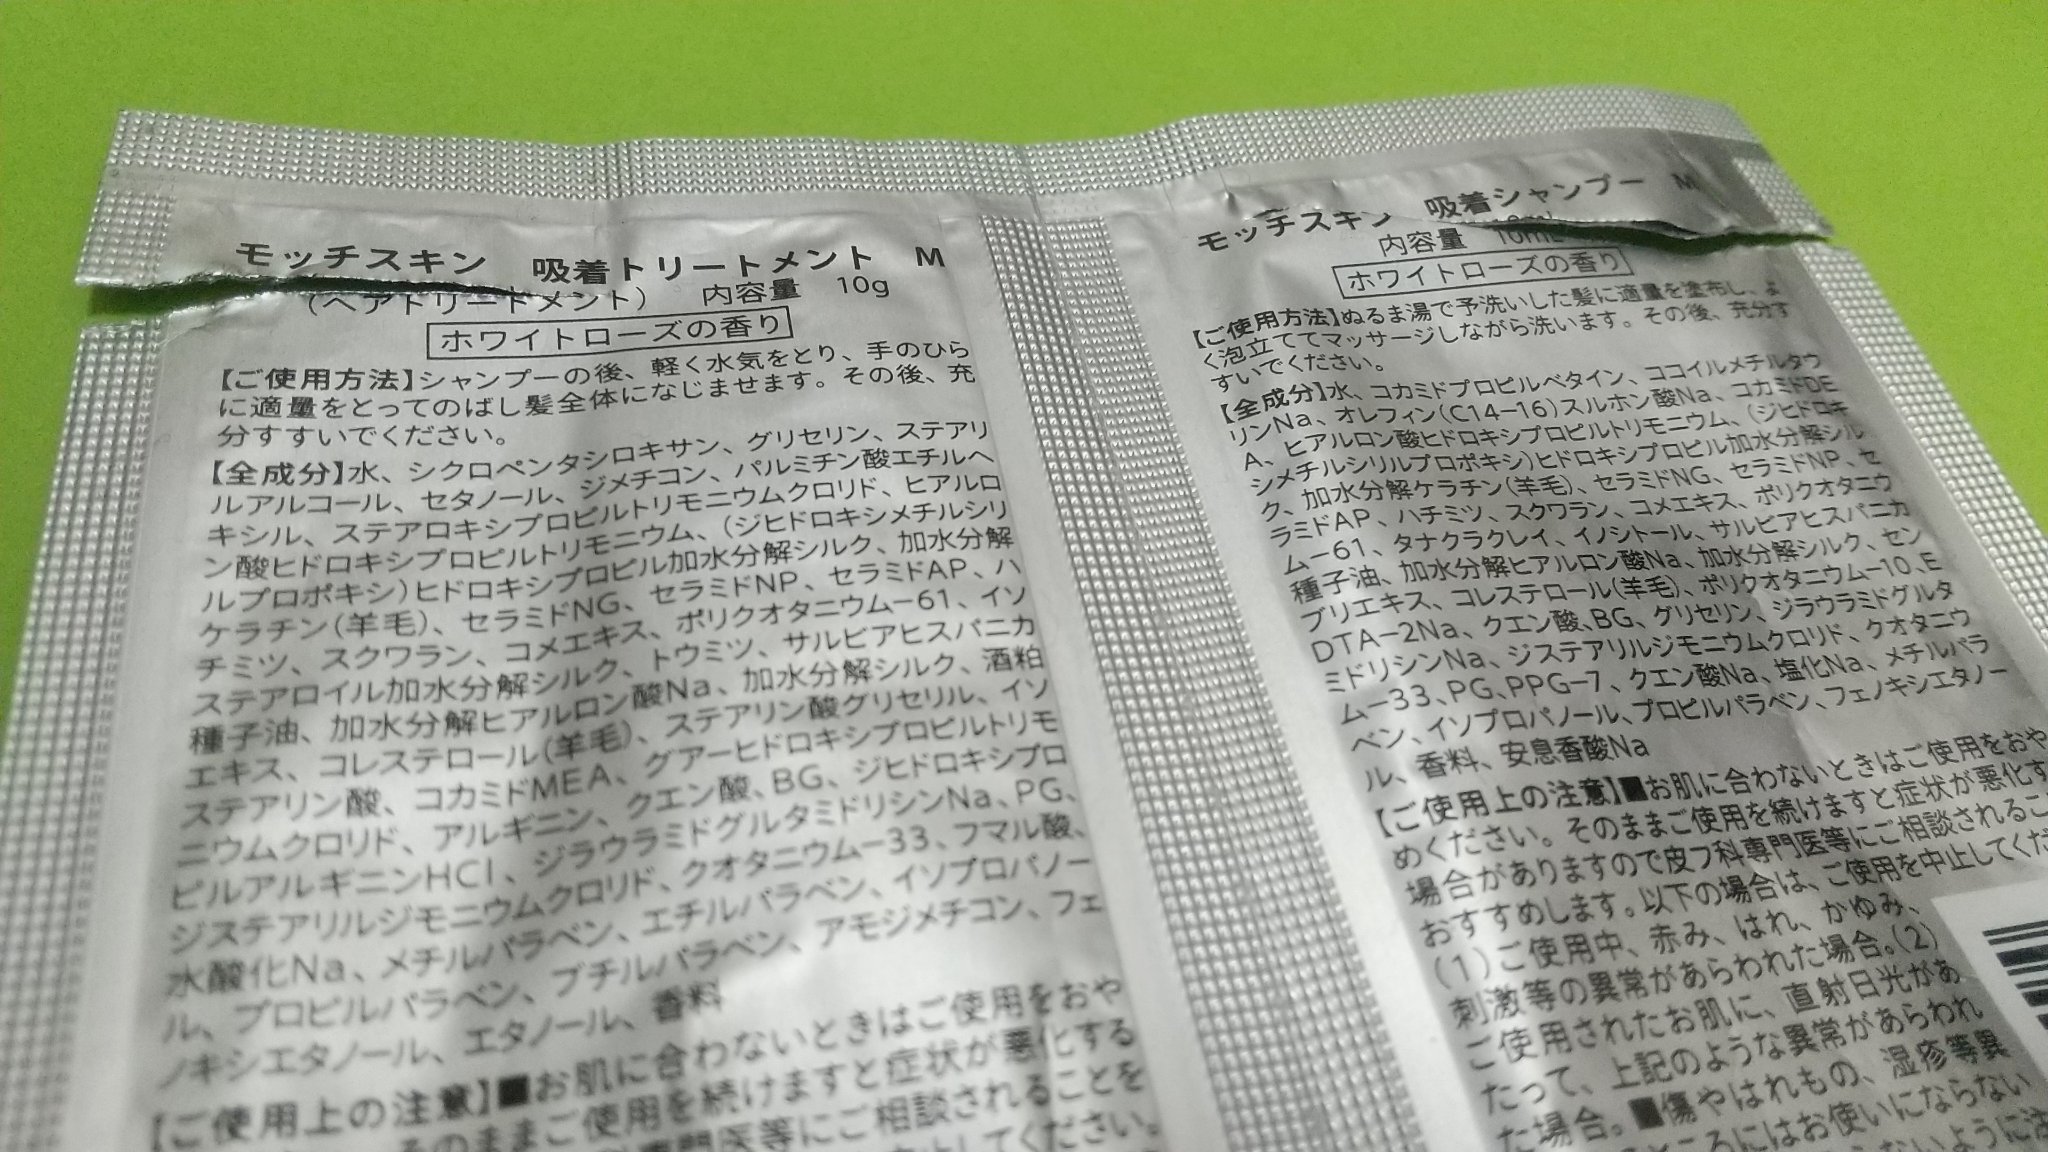 モッチスキン 吸着トリートメント M
（ヘアトリートメント） 内容量 10g
ホワイトローズの香り
【ご使用方法】シャンプーの後、軽く水気をとり、手のひら
に適量をとってのばし髪全体になじませます。その後、充
分すすいでください。
【全成分】水、シクロペンタシロキサン、グリセリン、ステアリ
ルアルコール、セタノール、ジメチコン、パルミチン酸エチルヘ
キシル、ステアロキシプロピルトリモニウムクロリド、ヒアルロ
ン酸ヒドロキシプロピルトリモニウム、（ジヒドロキシメチルシリ
ルプロポキシ）ヒドロキシプロピル加水分解シルク、加水分解
ケラチン（羊毛）、セラミドNG、セラミドNP、セラミドAP、ハ
チミツ、スクワラン、コメエキス、ポリクオタニウム－61、イソ
ステアロイル加水分解シルク、トウミツ、サルビアヒスパニカ
種子油、加水分解ヒアルロン酸Na、加水分解シルク、酒粕
エキス、コレステロール（羊毛）、ステアリン酸グリセリル、イソ
ステアリン酸、コカミドMEA、グアーヒドロキシプロピルトリモ
ニウムクロリド、アルギニン、クエン酸、BG、ジヒドロキシプロ
ピルアルギニンHCl、ジラウラミドグルタミドリシンNa、PG、
ジステアリルジモニウムクロリド、クオタニウム－33、フマル酸、
水酸化Na、メチルパラベン、エチルパラベン、イソプロパノー
ル、プロピルパラベン、ブチルパラベン、アモジメチコン、フェ
ノキシエタノール、エタノール、香料
【ご使用上の注意】■お肌に合わないときはご使用をおや
そのままご使用を続けますと症状が悪化する
専門医等にご相談されることを
止してください。
モッチスキン 吸着シャンプー M
内容量 10mL
ホワイトローズの香り
【ご使用方法】ぬるま湯で予洗いした髪に適量を塗布し、よ
く泡立ててマッサージしながら洗います。その後、充分す
すいでください。
【全成分】水、コカミドプロピルベタイン、ココイルメチルタウ
リンNa、オレフィン（C14－16）スルホン酸Na、コカミドDE
A、ヒアルロン酸ヒドロキシプロピルトリモニウム、（ジヒドロキ
シメチルシリルプロポキシ）ヒドロキシプロピル加水分解シル
ク、加水分解ケラチン（羊毛）、セラミドNG、セラミドNP、セ
ラミドAP、ハチミツ、スクワラン、コメエキス、ポリクオタニウ
ム－61、タナクラクレイ、イノシトール、サルビアヒスパニカ
種子油、加水分解ヒアルロン酸Na、加水分解シルク、セン
ブリエキス、コレステロール（羊毛）、ポリクオタニウム－10、E
DTA－2Na、クエン酸、BG、グリセリン、ジラウラミドグルタ
ミドリシンNa、ジステアリルジモニウムクロリド、クオタニウ
ム－33、PG、PPG－7、クエン酸Na、塩化Na、メチルパラ
ベン、イソプロパノール、プロピルパラベン、フェノキシエタノー
ル、香料、安息香酸Na
【ご使用上の注意】■お肌に合わないときはご使用をおや
めください。そのままご使用を続けますと症状が悪化す
場合がありますので皮フ科専門医等にご相談されるこ
おすすめします。以下の場合は、ご使用を中止してくだ
（1）ご使用中、赤み、はれ、かゆみ、
刺激等の異常があらわれた場合。（2）
ご使用されたお肌に、直射日光があ
たって、上記のような異常があらわれ
た場合。■傷やはれもの、湿疹等異
ところにはお使いにならない